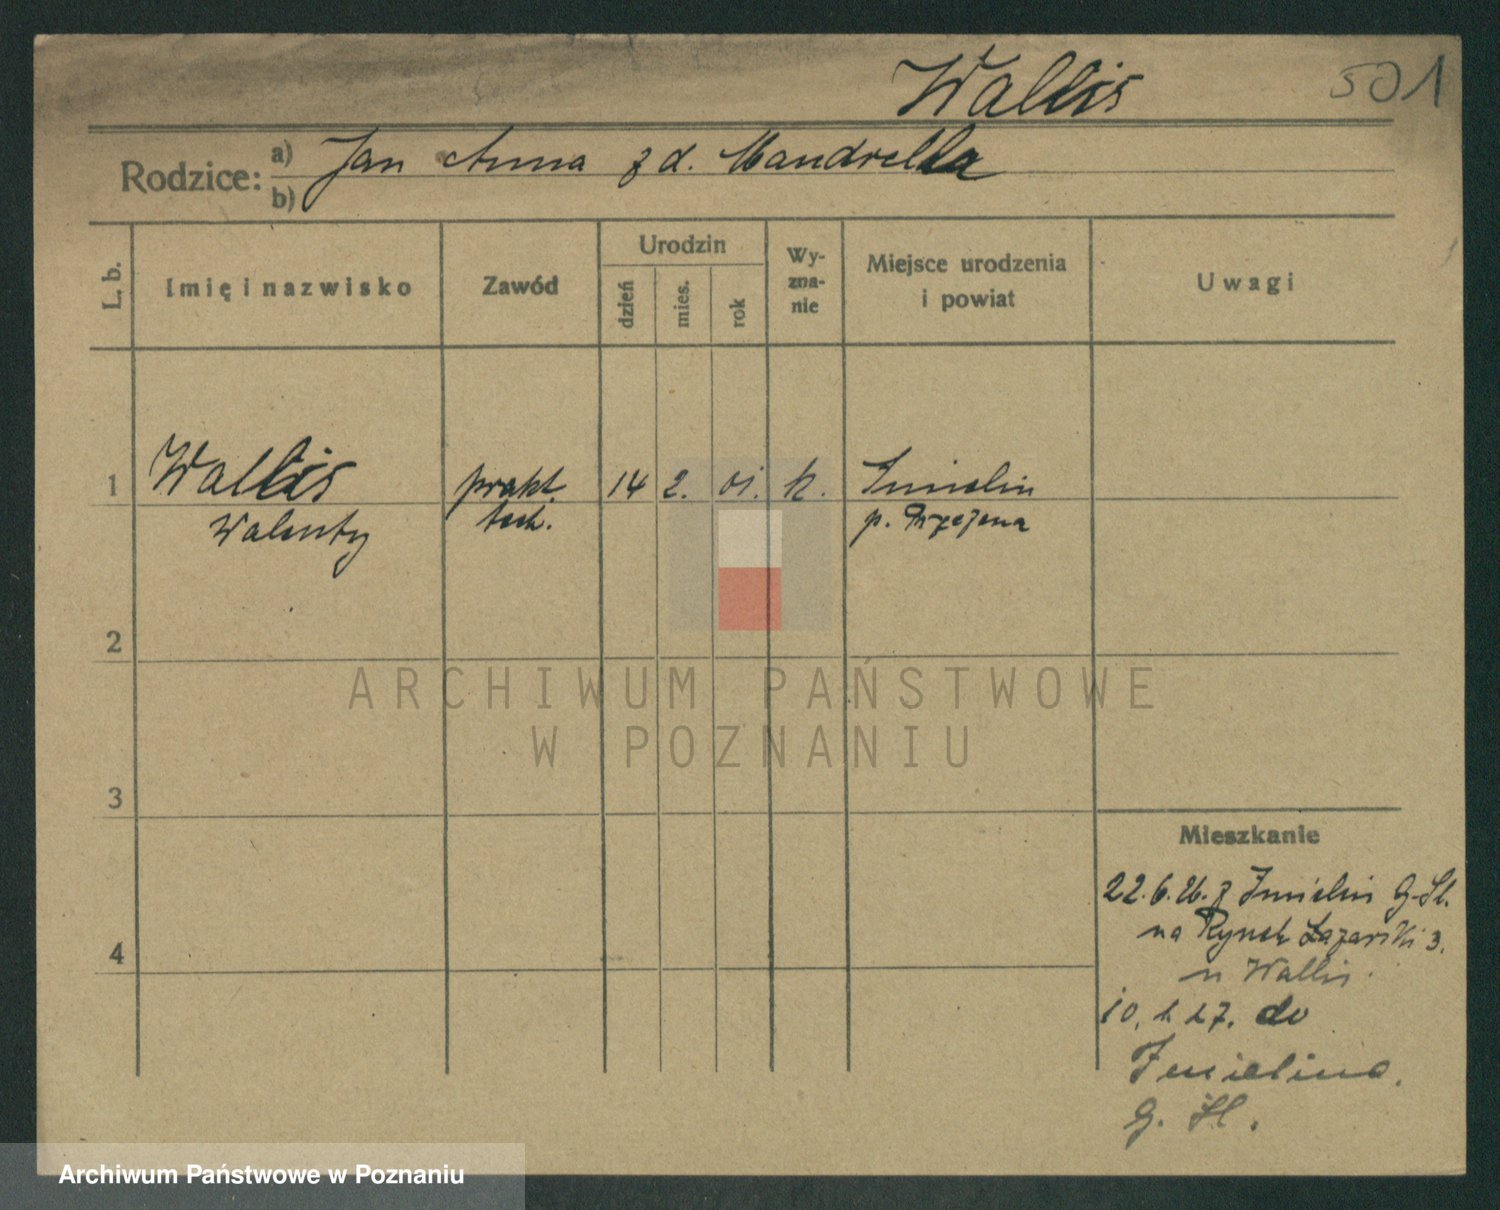 Wallis
501
Rodzice: a) Jan Anna z d. Mandrella
b)
L. b.
Imię i nazwisko
Zawód
Urodzin
dzień
mies.
rok
Wy-
zna-
nie
Miejsce urodzenia
i powiat
Uwagi
1 Wallis prakt. 14 2. 01. k. Imielin
Walenty tech. p.
2
3
4
Mieszkanie
22.6.26. z Imielin G. Śl.
na Rynek Łazarski 3.
u Wallis.
10. 27. do
Imielina.
G. Śl.
ARCHIWUM PAŃSTWOWE
W POZNANIU
Archiwum Państwowe w Poznaniu